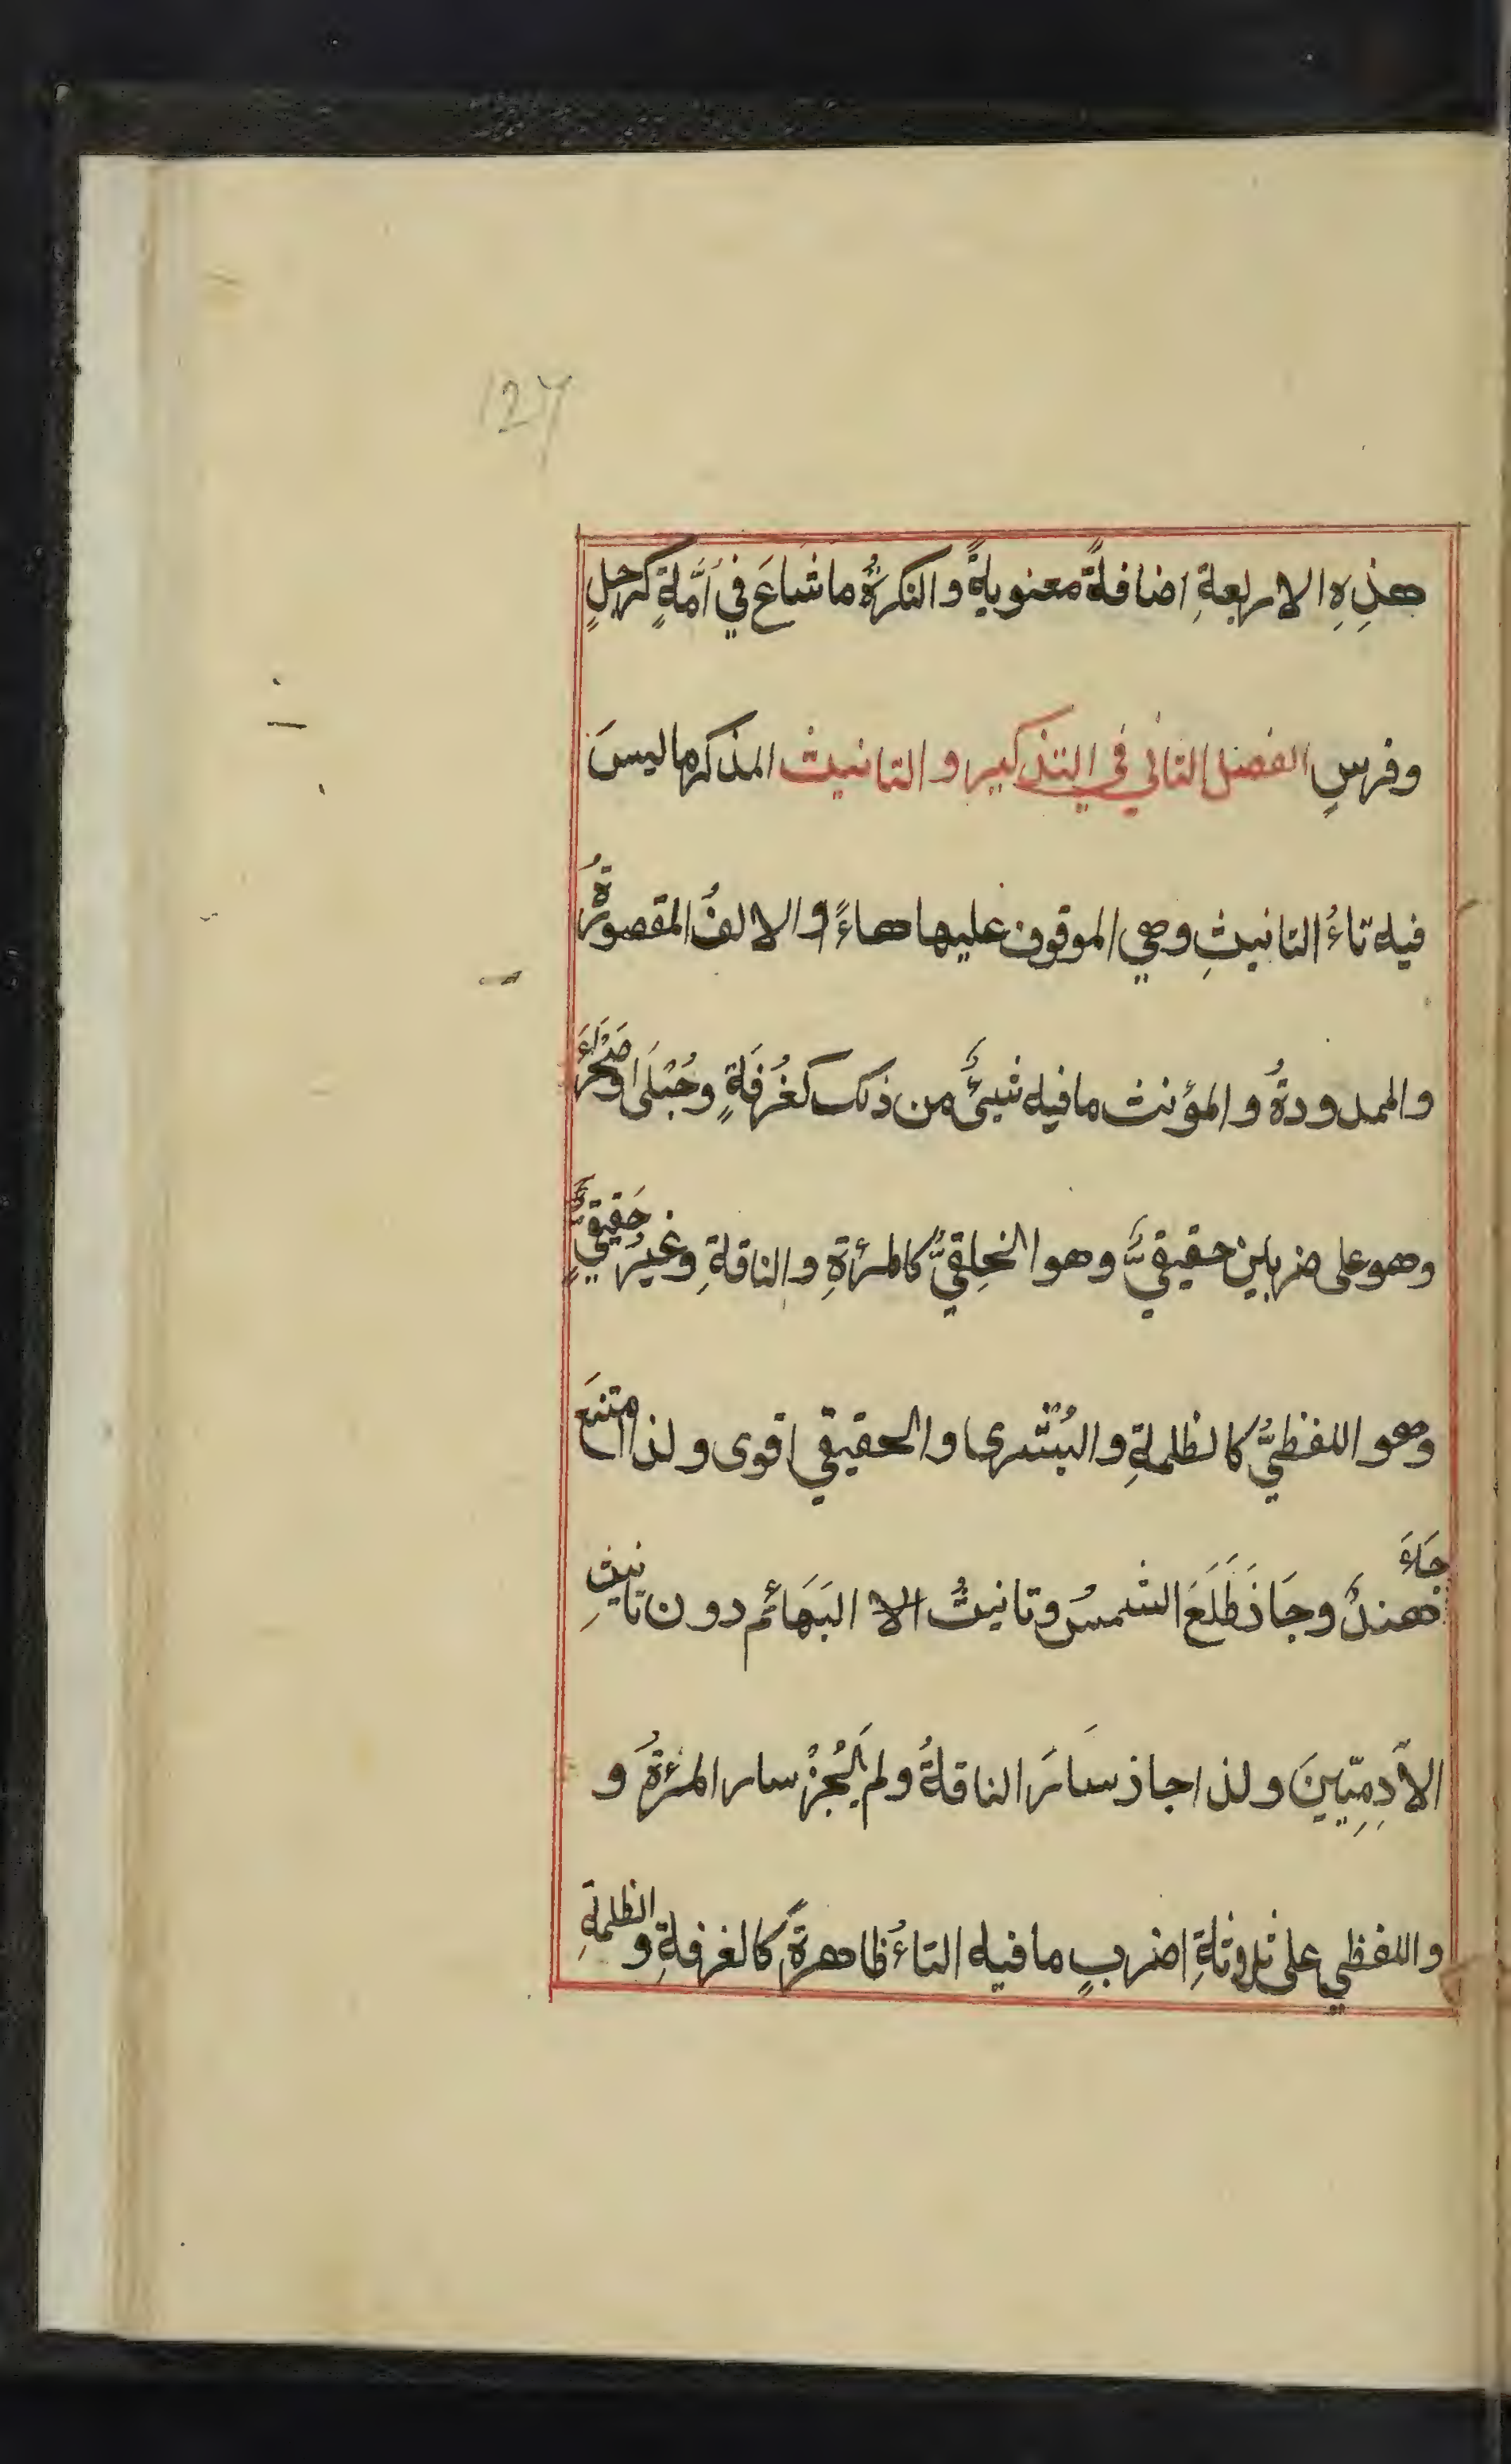 127
هذِهِ الاربعةِ اضافةً معنويةً والنكرةُ ما شاعَ في اُمّةٍ كرجلٍ
وفرسٍ الفصل الثاني في التذكير والتانيث المذكر ما ليسَ
فيه تاءُ التانيثِ وهي الموقوف عليها هاءً والالفُ المقصورةُ
والممدودةُ والمؤنث ما فيه شيئٌ من ذلك كغُرفَةٍ وحُبْلَى وصَحْرَاءَ
وهو على ضربين حقيقيٌّ وهو الخِلقيُّ كالمرْأةِ والناقةِ وغيرُ حَقيقيٍّ
وهو اللفظيُّ كالظلمةِ والبُشْرى والحقيقي اقوى ولذا امتنعَ
جَاءَ هندٌ وجَازَ طَلَعَ الشمسُ وتانيثُ الا البَهَائم دون تانيثِ
الآدِمِيّينَ ولذا جاز سَارَ الناقةُ ولم يَجُزْ سار المرْأةُ و
واللفظي على ثلاثةِ اضربٍ ما فيه التاءُ ظاهرةً كالغرفةِ والظلمةِ